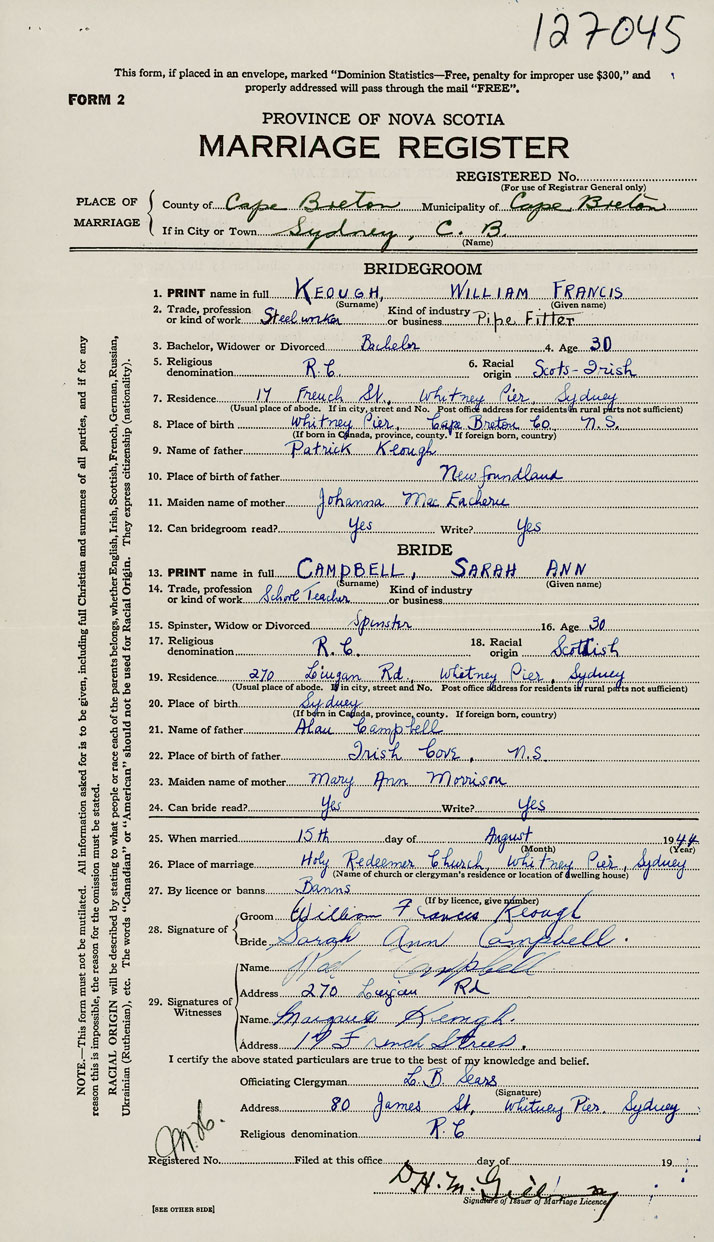 127045
This form, if placed in an envelope, marked "Dominion Statistics—Free, penalty for improper use $300," and
properly addressed will pass through the mail "FREE".
FORM 2
PROVINCE OF NOVA SCOTIA
MARRIAGE REGISTER
REGISTERED No.
(For use of Registrar General only)
PLACE OF MARRIAGE
County of Cape Breton Municipality of Cape Breton
If in City or Town Sydney, C. B.
(Name)
BRIDEGROOM
1. PRINT name in full KEOUGH, WILLIAM FRANCIS
(Surname) (Given name)
2. Trade, profession or kind of work Steel worker Kind of industry or business Pipe Fitter
3. Bachelor, Widower or Divorced Bachelor 4. Age 30
5. Religious denomination R.C 6. Racial origin Scots-Irish
7. Residence 17 French St. Whitney Pier, Sydney
(Usual place of abode. If in city, street and No. Post office address for residents in rural parts not sufficient)
8. Place of birth Whitney Pier, Cape Breton Co. N.S.
(If born in Canada, province, county. If foreign born, country)
9. Name of father Patrick Keough
10. Place of birth of father Newfoundland
11. Maiden name of mother Johanna Mac Eachern
12. Can bridegroom read? Yes Write? Yes
BRIDE
13. PRINT name in full CAMPBELL, SARAH ANN
(Surname) (Given name)
14. Trade, profession or kind of work School Teacher Kind of industry or business
15. Spinster, Widow or Divorced Spinster 16. Age 30
17. Religious denomination R.C. 18. Racial origin Scottish
19. Residence 270 Lingan Rd. Whitney Pier, Sydney
(Usual place of abode. If in city, street and No. Post office address for residents in rural parts not sufficient)
20. Place of birth Sydney
(If born in Canada, province, county. If foreign born, country)
21. Name of father Alan Campbell
22. Place of birth of father Irish Cove, N.S
23. Maiden name of mother Mary Ann Morrison
24. Can bride read? Yes Write? Yes
25. When married 15th day of August 1944
(Month) (Year)
26. Place of marriage Holy Redeemer Church, Whitney Pier, Sydney
(Name of church or clergyman's residence or location of dwelling house)
27. By licence or banns Banns
(If by licence, give number)
28. Signature of
Groom William Francis Keough
Bride Sarah Ann Campbell.
29. Signatures of Witnesses
Name Campbell
Address 270 Lingan Rd
Name Margaret Keough.
Address 17 French Street.
I certify the above stated particulars are true to the best of my knowledge and belief.
Officiating Clergyman L. B. Sears
(Signature)
Address 80 James St, Whitney Pier. Sydney
Religious denomination R.C
Registered No. Filed at this office day of 19
Signature of Issuer of Marriage Licence
[SEE OTHER SIDE]
NOTE.—This form must not be mutilated. All information asked for is to be given, including full Christian and surnames of all parties, and if for any
reason this is impossible, the reason for the omission must be stated.
RACIAL ORIGIN will be described by stating to what people or race each of the parents belongs, whether English, Irish, Scottish, French, German, Russian,
Ukrainian (Ruthenian), etc. The words "Canadian" or "American" should not be used for Racial Origin. They express citizenship (nationality).